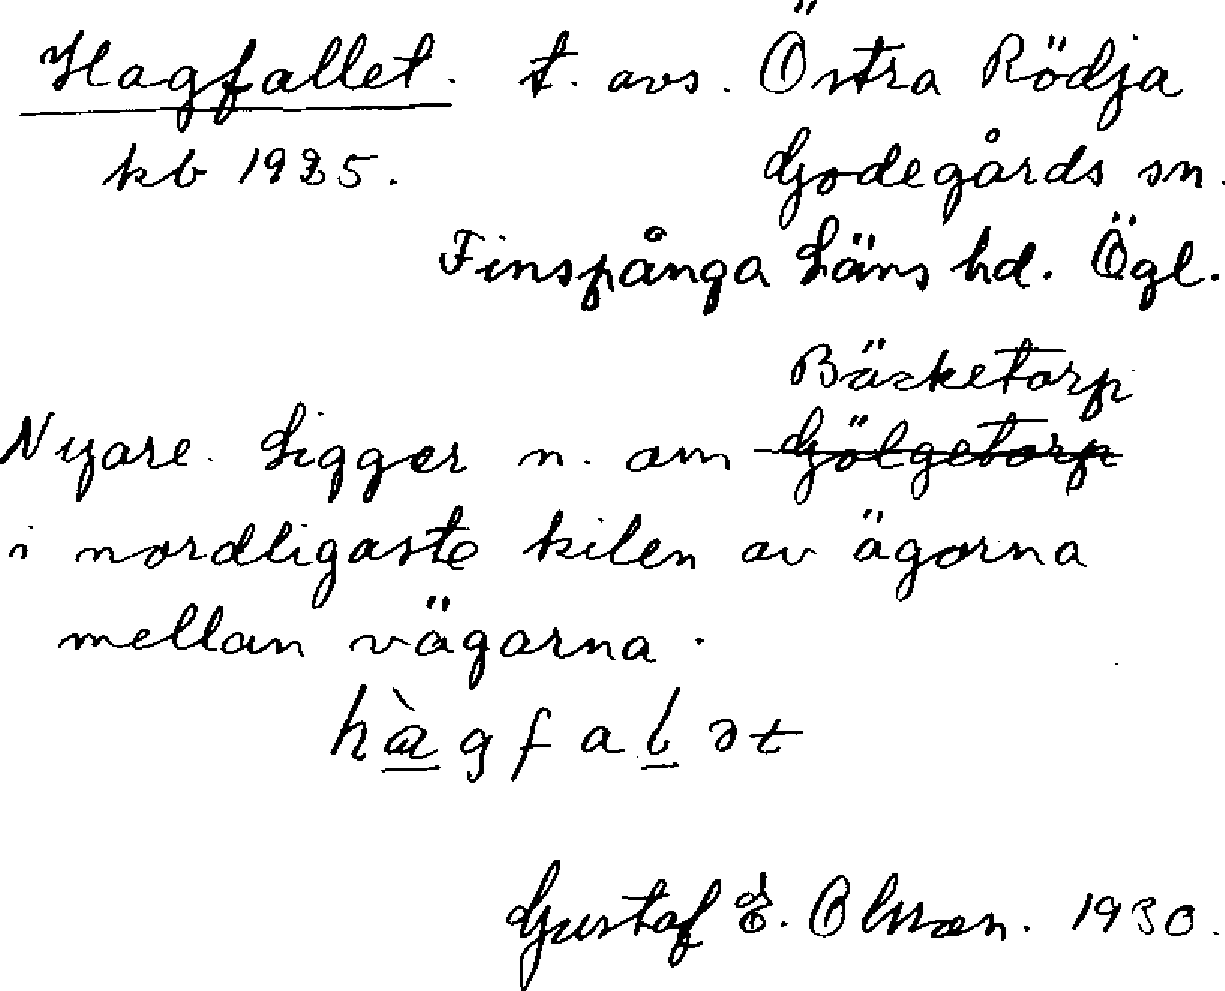 Hagfallet. t. avs. Östra Rödja
kb 1925. Godegårds sn.
Finspånga Läns hd. Ögl.
Bäcketorp
Nyare. Ligger n. om Gölgetorp
i nordligaste kilen av ägorna
mellan vägarna.
hàgfalət
Gustaf E. Olsson. 1930.